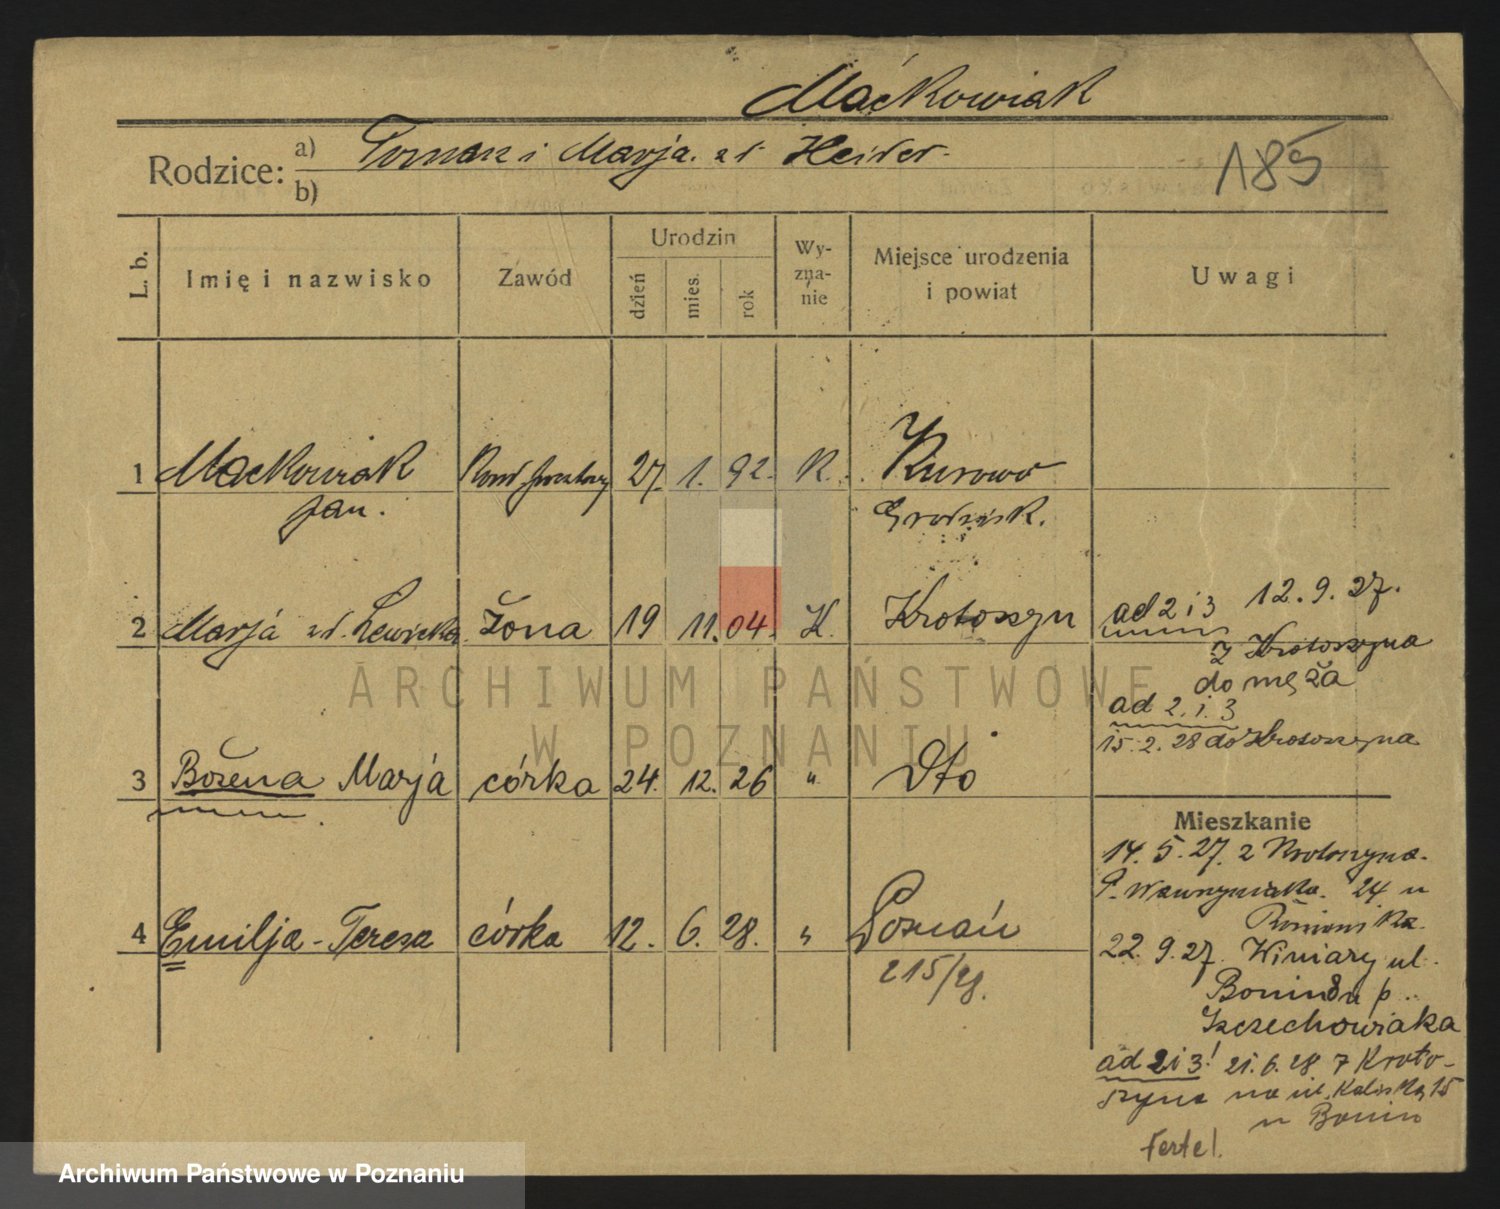 Maćkowiak
Rodzice: a) Tomasz i Marja zd. Heider.
b)
185
L. b.
Imię i nazwisko
Zawód
Urodzin
dzień
mies.
rok
Wy-
zna-
nie
Miejsce urodzenia
i powiat
Uwagi
1 Maćkowiak Kond. pocztowy 27. 1. 92. K. Kurowo
Jan. Grodzisk.
2 Marja zd. Lewicka żona 19 11. 04. K. Krotoszyn
ad 2 i 3 12. 9. 27.
z Krotoszyna
do męża
ad 2. i. 3
15. 2. 28 do Krotoszyna
3 Bożena Marja córka 24. 12. 26 " Dto
Mieszkanie
14. 5. 27. z Krotoszyna.
P. Wawrzyniaka. 24 u
4 Emilja-Teresa córka 12. 6. 28. " Poznań
215/28.
22. 9. 27. Winiary ul.
Bonin 8 u p.
Szczechowiaka
ad 2 i 3! 21. 6. 28 z Kroto-
szyna na ul. Kaliską 15
u Bonin
Fertel.
ARCHIWUM PAŃSTWOWE
W POZNANIU
Archiwum Państwowe w Poznaniu